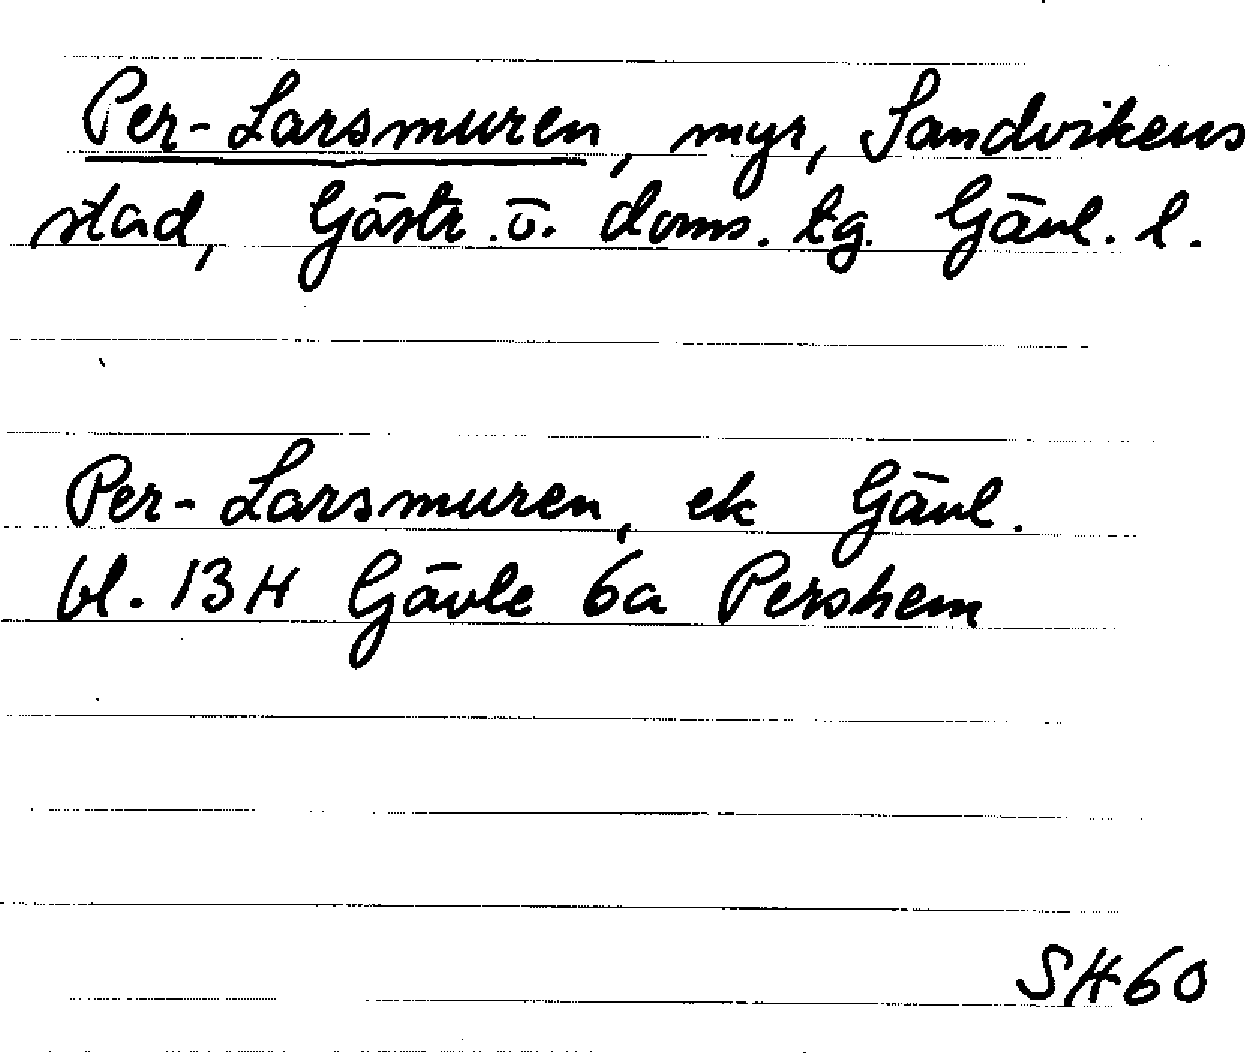 Per-Larsmuren, myr, Sandvikens
stad, Gästr. ö. doms. tg. Gävl. l.
Per-Larsmuren, ek Gävl.
bl. 13H Gävle 6a Pershem
SH60